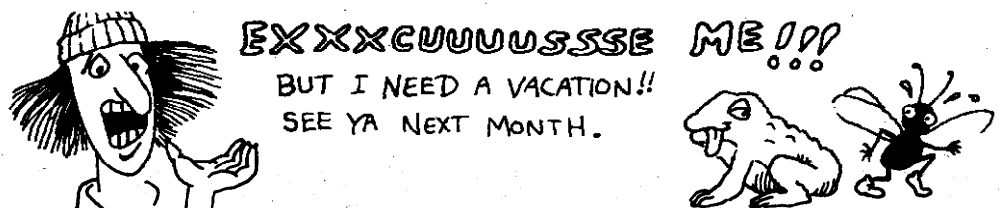 EXXXCUUUUSSSE ME!!!
BUT I NEED A VACATION!!
SEE YA NEXT MONTH.